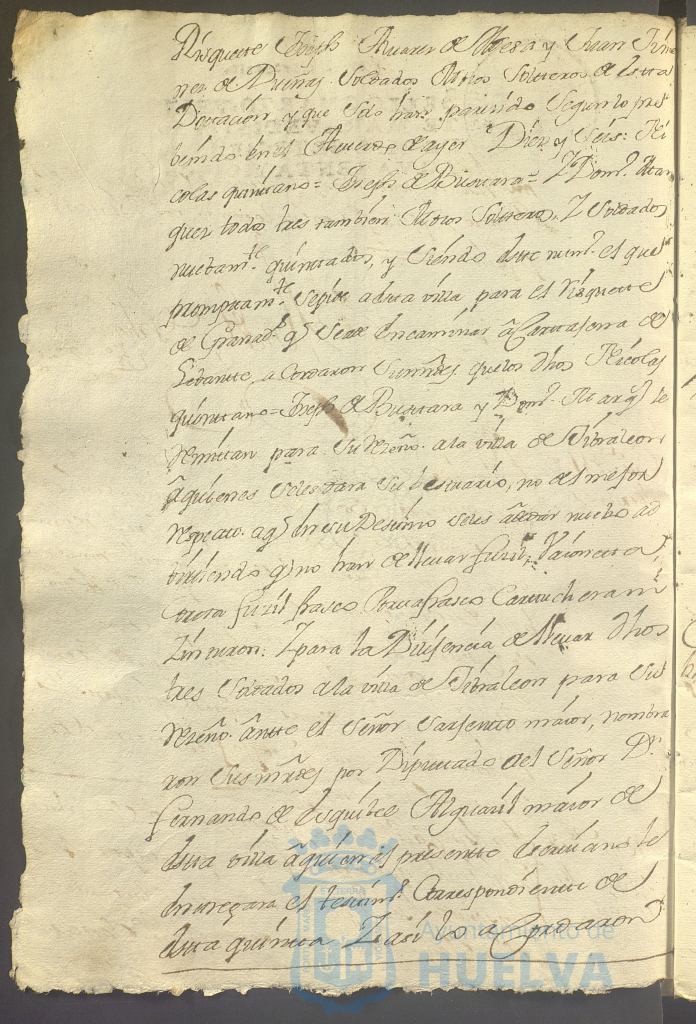 Risquette Joseph Suarez de Mesa y Juan Jime
nez de Nuñez Soldados Mozos Solteros de esta
Dotación y que solo han parecido segun lo pre
benido en el Acuerdo de ayer Diez y Seis: Ni
colas quintano = Joseph de Bustara = Z Domº Mar
quez todos tres tambien Mozos Solteros, Z Soldados
nuebamte quintados, y siendo este numº el que
promptamte sepide adsta villa para el
de Granada qe Seade Encaminar a Cartajena de
Lebante, acordaron Sus mrds que los dhos Nicolas
quintano = Joseph de Bustara y Domº Marqz se
Remitan para su à la villa de Jibraleon
âquienes seles dara su bestuario, no de mejor
respecto aqe en su Destino seles âdedar nuebo ad
birtiendo qe no han de llevar fuzil, Vaioneta,
Porta fuzil frasco Portafrasco Cartuchera ni
Zinturon: Z para la Dilijencia de llevar dhos
tres Soldados ala villa de Jibraleon para su
ânte el Señor Sarjento maior, nombra
ron Sus mrds por Diputado àel Señor Dn
Fernando de Esquibel Alguazil maior de
esta villa âquien el presente Escriuano le
entregara el testimº Correspondiente de
esta quinta Z asi lo acordaron
Ayuntamiento de
HUELVA